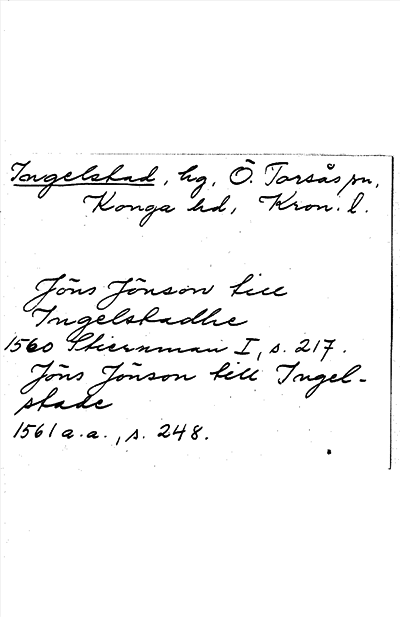 Ingelstad, hg, Ö. Torsås sn,
Konga hd, Kron. l.
Jöns Jönson till
Ingelstadhe
1560 Stiernman I, s. 217.
Jöns Jönson till Ingel-
stade
1561 a.a., s. 248.